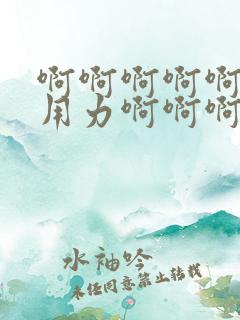 啊啊啊啊啊
用力啊啊啊
水袖吟
未经同意禁止转载